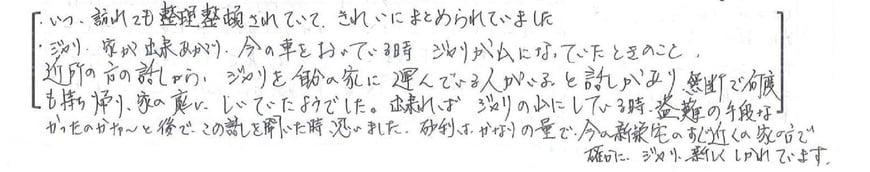 ・いつ、訪れても整理整頓されていて、きれいにまとめられていました
・ジャリ、家が出来あがり、今の車をおいている時 ジャリが山になっていたときのこと、
近所の方の話しから、ジャリを自分の家に運んでいる人がいると話しがあり、無断で何度
も持ち帰り、家の裏にしいていたようでした。出来れば ジャリの山にしている時、盗難の手段な
かったのかナ〜と後で、この話しを聞いた時、思いました。砂利は、かなりの量で、今の新築宅のすぐ近くの家の方で
確かに、ジャリ、新しくしかれています。